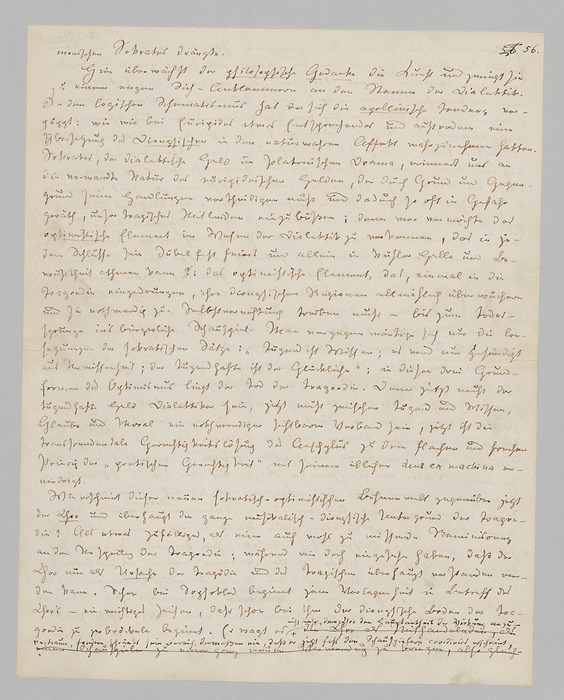 monischen Sokrates drängte. 56.
Hier überwächst der philosophische Gedanke die Kunst und zwingt sie
zu einem engen Sich-Anklammern an den Stamm der Dialektik.
In dem logischen Schematismus hat sich die apollinische Tendenz ver-
puppt: wie wir bei Euripides etwas Entsprechendes und außerdem eine
Übersetzung des Dionysischen in den naturwahren Affekt wahrzunehmen hatten.
Sokrates, der dialektische Held im platonischen Drama, erinnert uns an
die verwandte Natur des euripideischen Helden, der durch Grund und Gegen-
grund seine Handlungen vertheidigen muß und dadurch so oft in Gefahr
geräth, unser tragisches Mitleiden einzubüßen; denn wer vermöchte das
optimistische Element im Wesen der Dialektik zu verkennen, das in je-
dem Schlusse sein Jubelfest feiert und allein in kühler Helle und Be-
wußtheit athmen kann: das optimistische Element, das, einmal in die
Tragödie eingedrungen, ihre dionysischen Regionen allmählich überwuchern
und sie nothwendig zur Selbstvernichtung treiben muß – bis zum Todes-
sprunge ins bürgerliche Schauspiel. Man vergegenwärtige sich nur die Con-
sequenzen der sokratischen Sätze: „Tugend ist Wissen; es wird nur gesündigt
aus Unwissenheit; der Tugendhafte ist der Glückliche“; in diesen drei Grund-
formen des Optimismus liegt der Tod der Tragoedie. Denn jetzt muß der
tugendhafte Held Dialektiker sein, jetzt muß zwischen Tugend und Wissen,
Glaube und Moral ein nothwendiger sichtbarer Verband sein, jetzt ist die
transscendentale Gerechtigkeitslösung des Aeschylus zu dem flachen und frechen
Princip der „poetischen Gerechtigkeit“ mit seinem üblichen deus ex machina er-
niedrigt.
Wie erscheint dieser neuen sokratisch-optimistischen Bühnenwelt gegenüber jetzt
der Chor und überhaupt der ganze musikalisch-dionysische Untergrund der Tragoe-
die? Als etwas Zufälliges, als eine auch wohl zu missende Reminiscenz
an den Ursprung der Tragoedie; während wir doch eingesehn haben, daß der
Chor nur als Ursache der Tragödie und des Tragischen überhaupt verstanden wer-
den kann. Schon bei Sophokles beginnt jene Verlegenheit in Betreff des
Chors – ein wichtiges Zeichen, daß schon bei ihm der dionysische Boden der Tra-
goedie zu zerbröckeln beginnt. Er wagt es nicht mehr, dem Chor den Hauptantheil der Wirkung anzu-